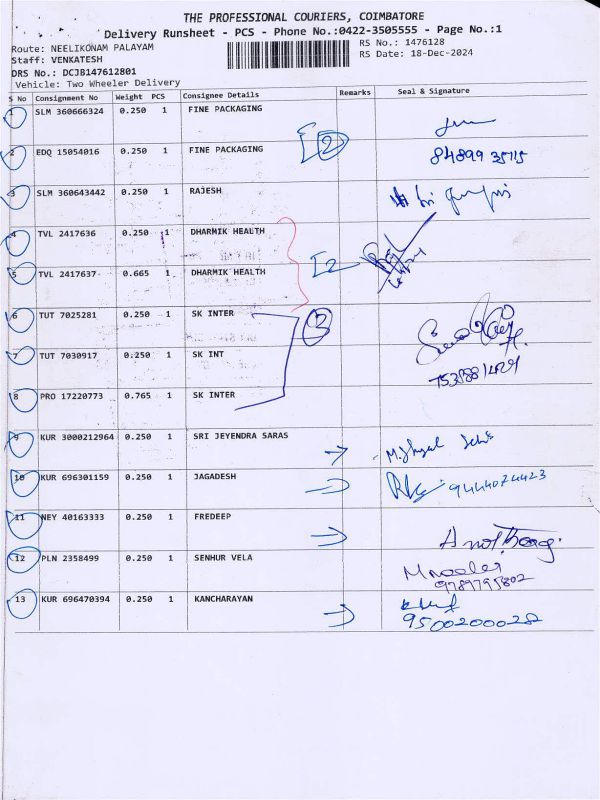 THE PROFESSIONAL COURIERS, COIMBATORE
Delivery Runsheet - PCS - Phone No.:0422-3505555 - Page No.:1
Route: NEELIKONAM PALAYAM
RS No.: 1476128
Staff: VENKATESH
RS Date: 18-Dec-2024
DRS No.: DCJB147612801
Vehicle: Two Wheeler Delivery
S No Consignment No Weight PCS Consignee Details Remarks Seal & Signature
1 SLM 360666324 0.250 1 FINE PACKAGING
2 EDQ 15054016 0.250 1 FINE PACKAGING 2 84899 35715
3 SLM 360643442 0.250 1 RAJESH
4 TVL 2417636 0.250 1 DHARMIK HEALTH
5 TVL 2417637 0.665 1 DHARMIK HEALTH 2
6 TUT 7025281 0.250 1 SK INTER 3
7 TUT 7030917 0.250 1 SK INT
8 PRO 17220773 0.765 1 SK INTER
9 KUR 3000212964 0.250 1 SRI JEYENDRA SARAS
10 KUR 696301159 0.250 1 JAGADESH 9444074423
11 NEY 40163333 0.250 1 FREDEEP
12 PLN 2358499 0.250 1 SENHUR VELA
9789795802
13 KUR 696470394 0.250 1 KANCHARAYAN
9500200028